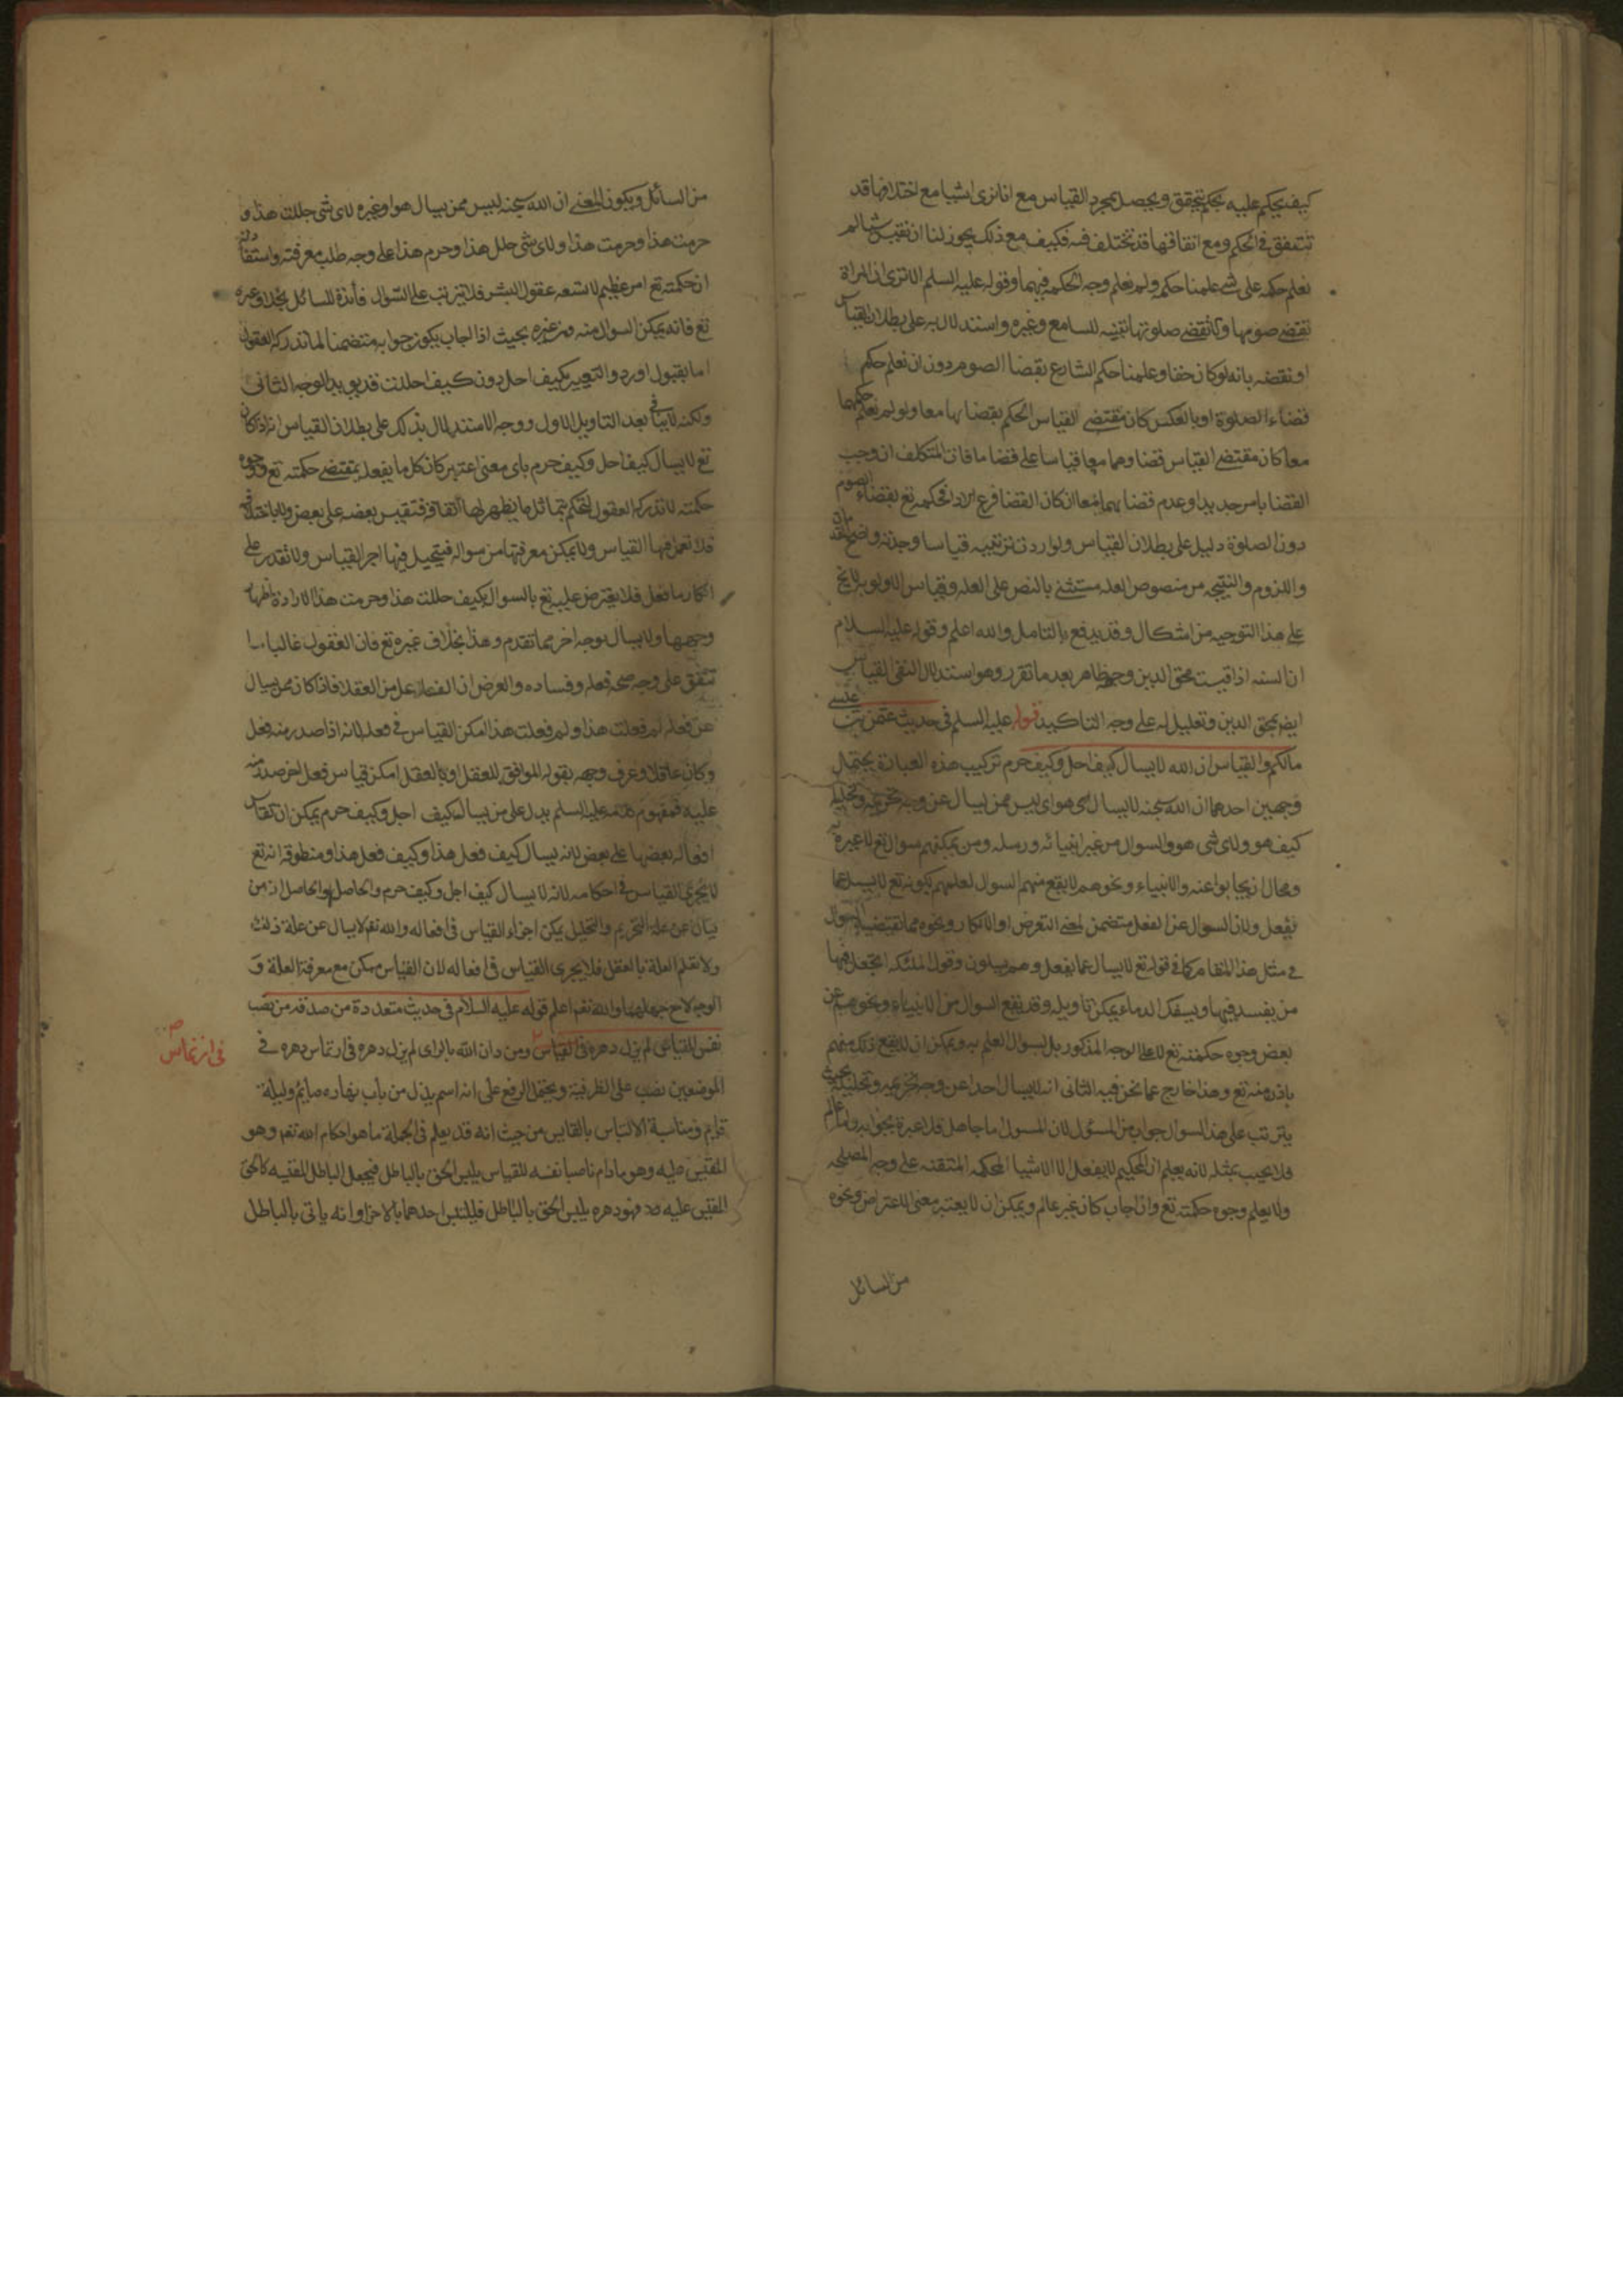 كيف يحكم عليه بحكم يتحقق ويحصل بمجرد القياس مع انا نرى اشيا مع اختلافها قد
تتفق في الحكم ومع اتفاقها قد تختلف فيه فكيف مع ذلك يجوز لنا ان نقيس شيا لم
نعلم حكمه على شي علمنا حكمه ولم نعلم وجه الحكمة فيهما وقوله عليه السلم الا ترى ان المراة
تقضي صومها ولا تقضي صلوتها تنبيه للسامع وغيره واستدلال به على بطلان القياس
او نقضه بانه لو كان حقا وعلمنا حكم الشارع بقضا الصوم دون ان نعلم حكم
قضاء الصلوة او بالعكس كان مقتضى القياس الحكم بقضائها معا ولو لم نعلم حكمهما
معا كان مقتضى القياس قضاوهما معا قياسا على قضا ما فات المتكلف ان وجب
القضا بامر جديد او عدم قضايهما معا ان كان القضا فرع الادا فحكمه تع بقضاء الصوم
دون الصلوة دليل على بطلان القياس ولو اردت ترتيبه قياسا وجدته واضح
واللزوم والنتيجه من منصوص العله مستثنى بالنص على العله وقياس الاولويه لا يخ
على هذا التوجيه من اشكال وقد يدفع بالتامل والله اعلم وقوله عليه السلام
ان السنه اذا قيست محق الدين وجهه ظاهر بعد ما تقرر وهو استدلال النفى القياس
ايض بمحق الدين وتعليل له على وجه التاكيد قوله عليه السلم في حديث عثمن بن عيسى
مالكم والقياس ان الله لا يسال كيف احل وكيف حرم تركيب هذه العبارة يحتمل
وجهين احدهما ان الله سبحنه لا يسال اي هو اي ليس ممن يسال عن وجه تحريمه وتحليله
كيف هو ولاى شى هو والسوال من غير انبيائه ورسله ومن يمكنهم سواله تع لا عبرة به
ومحال ان يجابوا عنه والانبياء ونحوهم لا يقع منهم السوال لعلمهم بكونه تع لا يسال عما
يفعل ولان السوال عن الفعل متضمن لمعنى التعرض او الانكار ونحوه مما تقتضيه الاحوال
في مثل هذا المقام كما في قوله تع لا يسال عما يفعل وهم يسلون وقول الملئكه اتجعل فيها
من يفسد فيها ويسفك الدماء يمكن تاويله وقد يقع السوال من الانبياء ونحوهم عن
بعض وجوه حكمته تع لا على الوجه المذكور بل لسوال العلم به ويمكن ان لا يقع ذلك منهم
باذن منه تع وهذا خارج عما نحن فيه الثانى انه لا يسال احدا عن وجه تحريمه وتحليله بحيث
يترتب على هذا السوال جواب من المسؤل لان المسول اما جاهل فلا عبرة بجوابه واما عالم
فلا يجيب بمثله لانه يعلم ان الحكيم لا يفعل الا الاشيا المحكمه المتقنه على وجه المصلحه
ولا يعلم وجوه حكمته تع وان اجاب كان غير عالم ويمكن ان لا يعتبر معنى الاعتراض ونحوه
من السائل
من السائل ويكون المعنى ان الله سبحنه ليس ممن يسال هو او غيره لاى شى حللت هذا و
حرمت هذا وحرمت هذا ولاى شى حلل هذا وحرم هذا على وجه طلب معرفته واستفادته
ان حكمته تع امر عظيم لا تسعه عقول البشر فلا يترتب على السوال فائدة للسائل بخلاف غيره
تع فانه يمكن السوال منه ومن غيره بحيث اذا اجاب يكون جوابه متضمنا لما تدركه العقول
اما بقبول او رد والتعبير بكيف احل دون كيف احللت قد يويد الوجه الثانى
ولكنه لا ينافى بعد التاويل الاول ووجه الاستدلال بذلك على بطلان القياس انه اذا كان
تع لا يسال كيف احل وكيف حرم باى معنى اعتبر كان كل ما يفعله بمقتضى حكمته تع ووجوه
حكمته لا تدركه العقول لتحكم بتماثل ما يظهر لها اتفاقه فتقيس بعضه على بعض ولا باختلافه
فلا تعمل فيها القياس ولا يمكن معرفتها من سواله فيتحيل فيها اجرا القياس ولا تقدر على
انكار ما فعل فلا يعترض عليه تع بالسوال بكيف حللت هذا وحرمت هذا لارادة اظهار
وجهها ولا يسال بوجه اخر مما تقدم وهذا بخلاف غيره تع فان العقول غالبا
تتفق على وجه صحه فعله وفساده والعرض ان الفاعل من العقلا فاذا كان ممن يسال
عن فعله لم فعلت هذا ولم فعلت هذا امكن القياس في فعله لانه اذا صدر منه فعل
وكان عاقلا وعرف وجهه بقوله الموافق للعقل او بالعقل امكن قياس فعل اخر صدر منه
عليه فمفهوم كلامه عليه السلم يدل على من يسال كيف احل وكيف حرم يمكن ان تقاس
افعاله بعضها على بعض لانه يسال كيف فعل هذا وكيف فعل هذا ومنطوقه انه تع
لا يجرى القياس في احكامه لانه لا يسال كيف احل وكيف حرم والحاصل والحاصل ان من
يسال عن علة التحريم والتحليل يمكن اجراء القياس في افعاله والله تعم لا يسال عن علة ذلك
ولا تعلم العلة بالعقل فلا يجرى القياس في افعاله لان القياس ممكن مع معرفة العلة و
الوجه لا مع جهلهما والله تعم اعلم قوله عليه السلام في حديث متعددة من صدقه من نصب
نفسه للقياس لم يزل دهره في القياس ومن دان الله بالراى لم يزل دهره في ارتماس دهره في
في ارتماس
الموضعين نصب على الظرفية ويحتمل الرفع على انه اسم يزل من باب نهاره صايم وليله
قايم ومناسبة الالتباس بالقايس من حيث انه قد يعلم في الجملة ما هو احكام الله تعم وهو
المقيس عليه وهو مادام ناصبا نفسه للقياس يلبس الحق بالباطل فيجعل الباطل المقيسه كالحق
المقيس عليه فهو دهره يلبس الحق بالباطل فليلتبس احدهما بالاخر او انه ياتى بالباطل